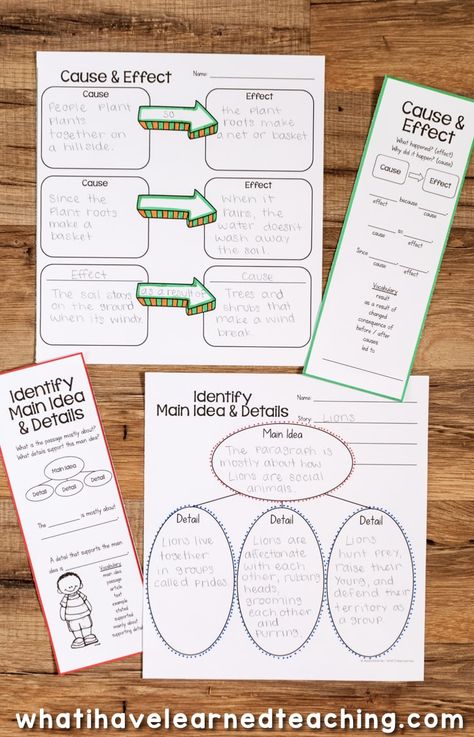 Cause & Effect
Name:
Cause
People plant
plants
together on
a hillside.
so
Effect
the plant
roots make
a net or basket
Cause
Since the
plant roots
make a
basket
Effect
When it
rains, the
water doesn't
wash away
the soil.
Effect
The soil stays
on the ground
when its windy.
as a result of
Cause
Trees and
shrubs that
make a wind
break
Cause &
Effect
What happened? (effect)
Why did it happen? (cause)
Cause
Effect
because
effect
cause
so
cause
effect
Since
cause
effect
Vocabulary
result
as a result of
changed
consequence of
before / after
causes
led to
Identify
Main Idea
& Details
What is the passage mostly about?
What details support this main idea?
Main Idea
Detail
Detail
Detail
The
is mostly about
A detail that supports the main
idea is
Vocabulary
main idea
passage
article
text
example
stated
supported
mostly about
supporting detail
Identify
Main Idea & Details
Name:
Story: Lions
Main Idea
The paragraph is
mostly about how
Lions are social
animals.
Detail
Lions live
together
in groups
called prides
Detail
Lions are
affectionate
with each
other, rubbing
heads,
grooming
each other
and
purring.
Detail
Lions
hunt prey,
raise their
young, and
defend their
territory as
a group.
whatihavelearnedteaching.com